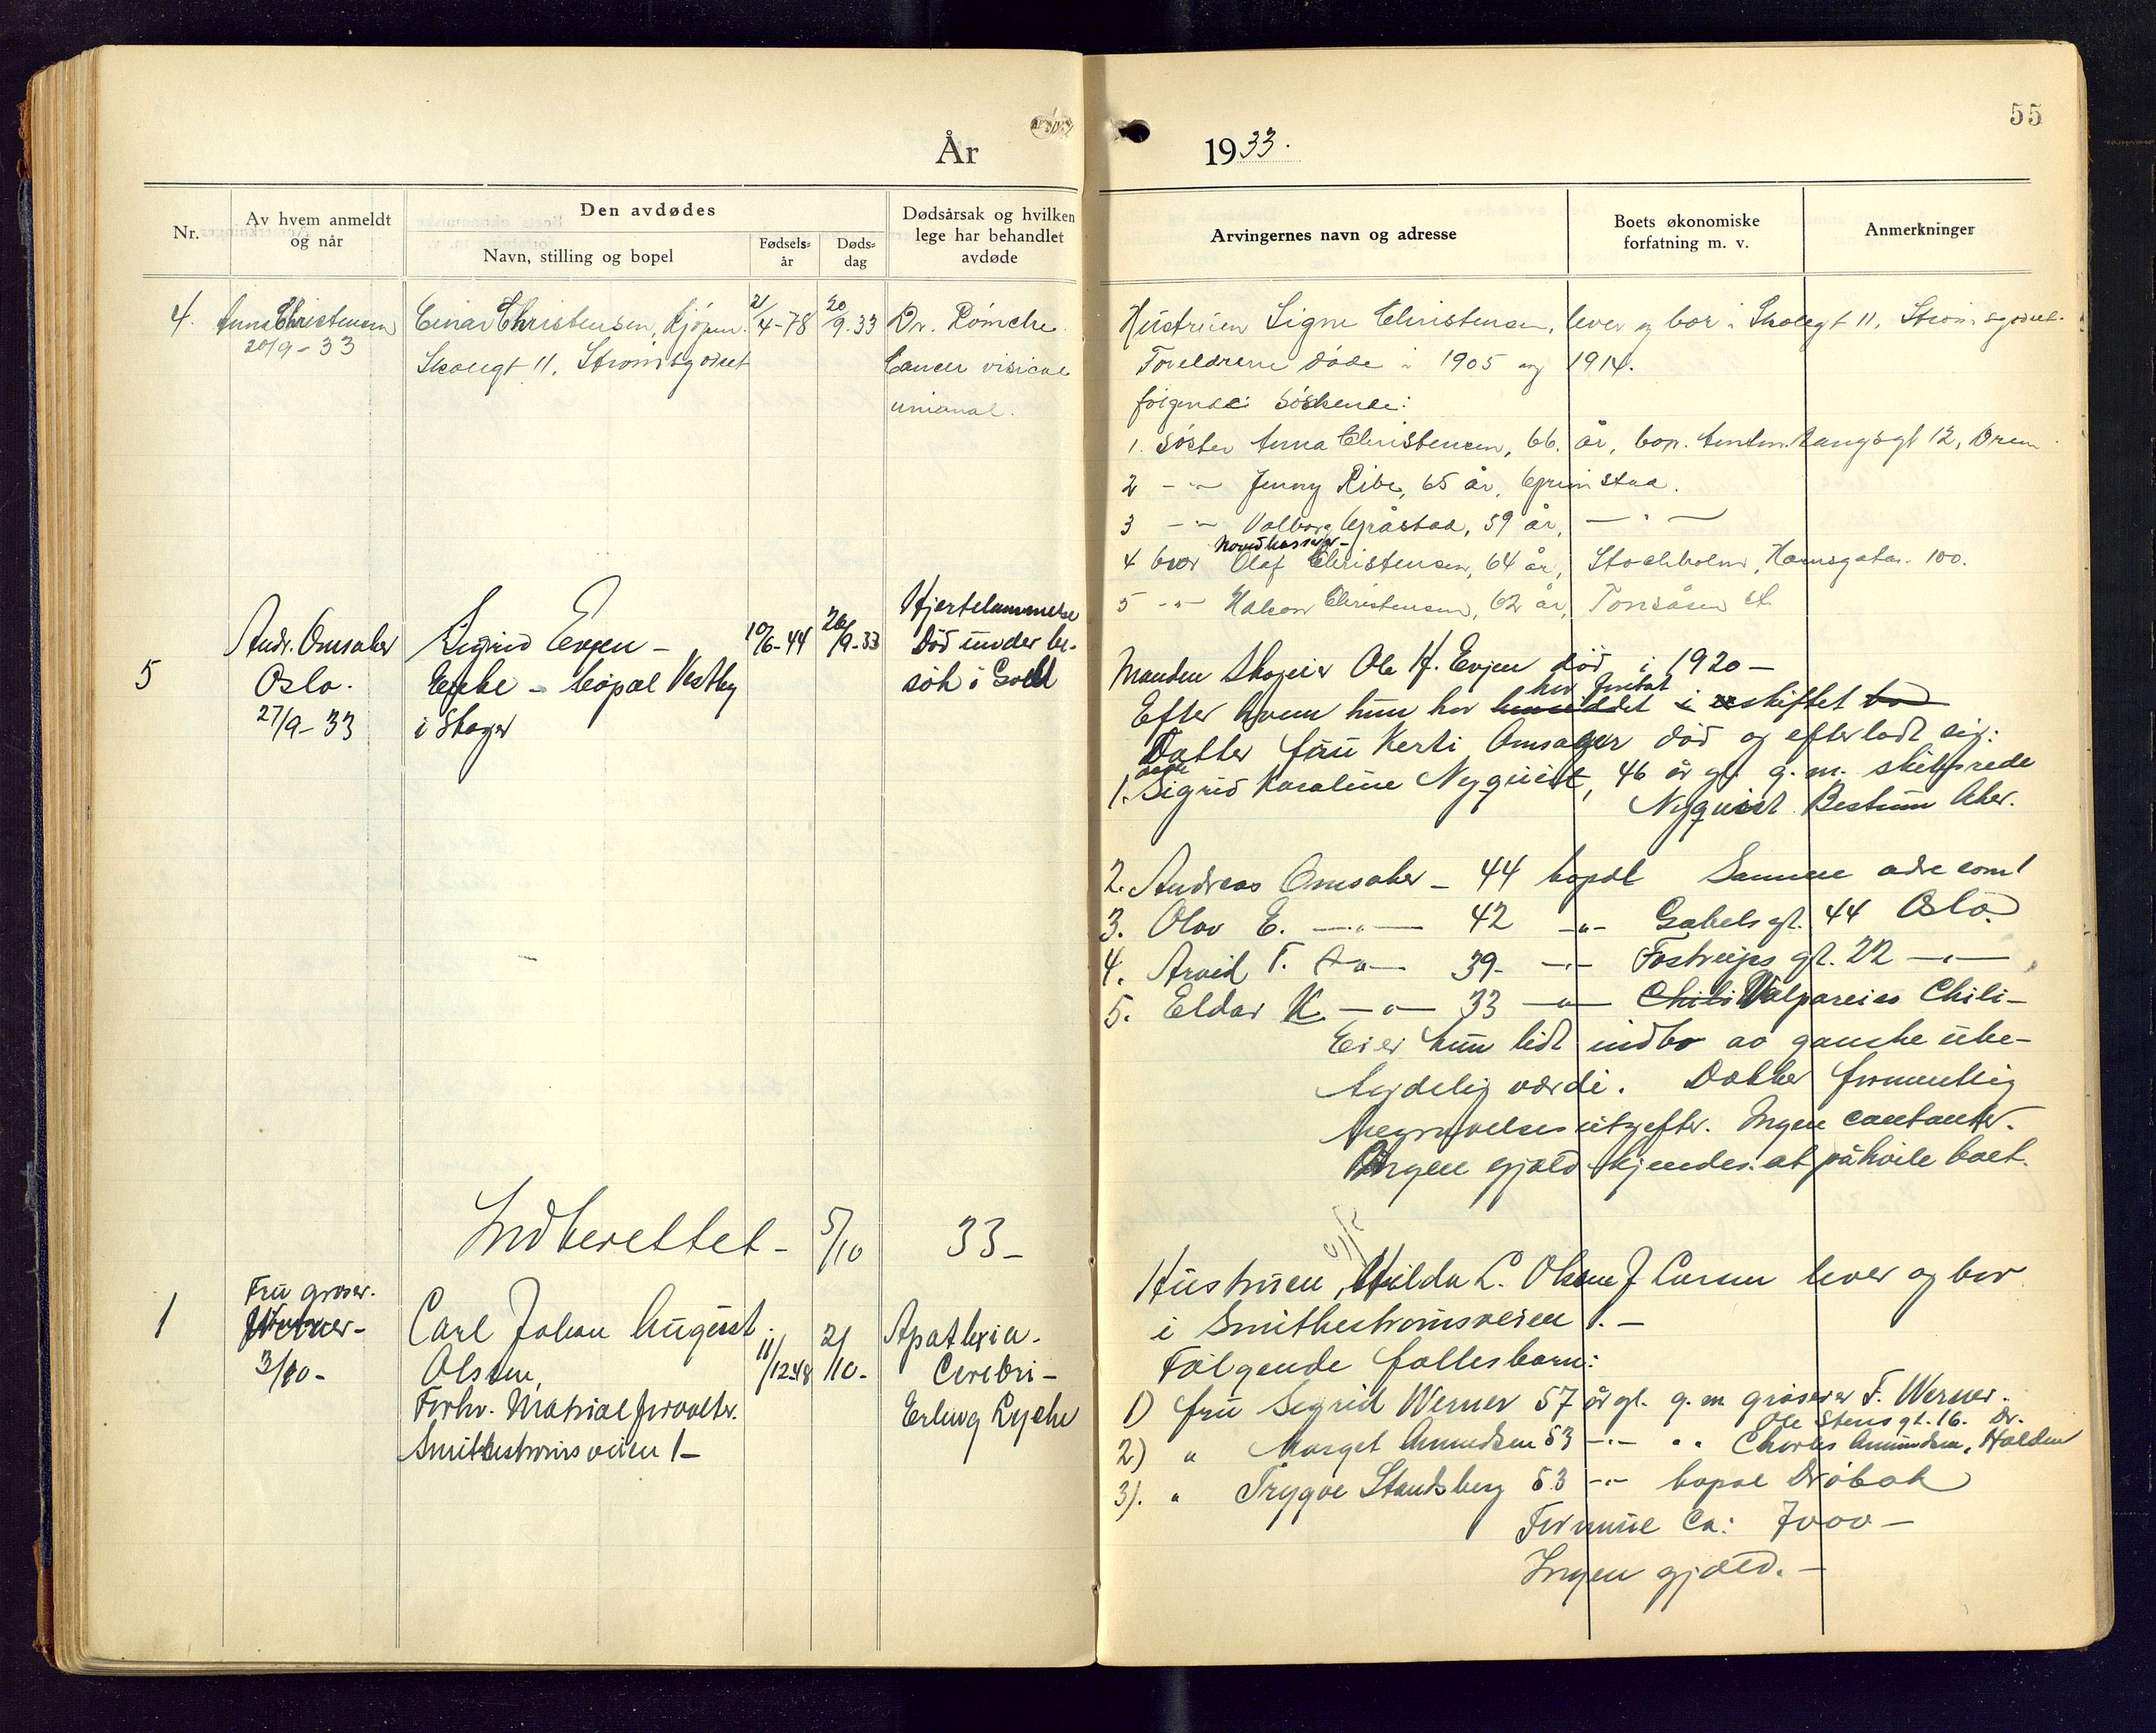 55
År 1933.
Nr.
Av hvem anmeldt
og når
Den avdødes
Navn, stilling og bopel
Fødsels-
år
Døds-
dag
Dødsårsak og hvilken
lege har behandlet
avdøde
Arvingernes navn og adresse
Boets økonomiske
forfatning m. v.
Anmerkninger
4. Anna Christensen
20/9-33
Einar Christensen, kjøpm.
Skolegt 11, Strømsgodset
21/4-78
20/9-33
Dr. Rømcke
Cancer
Hustruen Signe Christensen, lever og bor i Skolegt 11, Strømsgodset.
Foreldrene døde i 1905 og 1914.
følgende søskende:
1. søster Anna Christensen, 66 år, bop. Amtm. Bangsgt 12, Drm
2 -"- Jenny Ribe, 65 år, Grimstad.
3 -"- Valborg Gråstad, 59 år, -"-
Hovedkasserer
4 bror Olaf Christensen, 64 år, Stockholm, 100.
5 -"- Håkon Christensen, 62 år, Tonsåsen st.
5
Andr. Omsaker
Oslo.
27/9-33
Sigrid Evjen -
Enke - bopæl Vestby
i Skoger
10/6-44
26/9-33
Hjertelammelse
Død under be-
søk i Gol
Manden Skogeier Ole H. Evjen død i 1920 -
Efter hvem hun har skiftet
Datter fru Kerti Omsaker død og efterlodt sig:
1. Sigrid Karoline Nyquist, 46 år gl. g.m. skibsrede
Nyquist Bestum Aker.
2. Andreas Omsaker - 44 bopæl Samme adr som 1
3. Olav E. -"- 42 -"- Gabelsgt. 44 Oslo.
4. Arvid T. -"- 39 -"- Fostrups gt. 22 -"-
5. Eldar K -"- 33 -"- Chili Valpareiso Chili -
Eier hun lidt indbo av ganske ube-
tydelig værdi. Dækker formentlig
begravelsesutgifter. Ingen contanter.
Ingen gjæld kjendes at påhvile boet.
Indberettet - 5/10 33 -
1
Fru groser.
Werner -
3/10 -
Carl Johan August
Olsen,
Forhv. Matrialforvalter.
Smithestrømsveien 1 -
11/12-48
2/10-
Apoplexia
Cerebri -
Erling Lyche
Hustruen, Hilda L. Olsen f Larsen lever og bor
i Smithestrømsveien 1. -
Følgende fællesbarn:
1) fru Sigrid Werner 57 år gl. g.m. groserer F. Werner.
Ole Steens gt. 16. Dr.
2) " Marget Amundsen 53 -"- " " Charles Amundsen, Halden
3). " Trygve Standsberg 53 -"- bopæl Drøbak
Formue Ca: 7000 -
Ingen gjæld. -